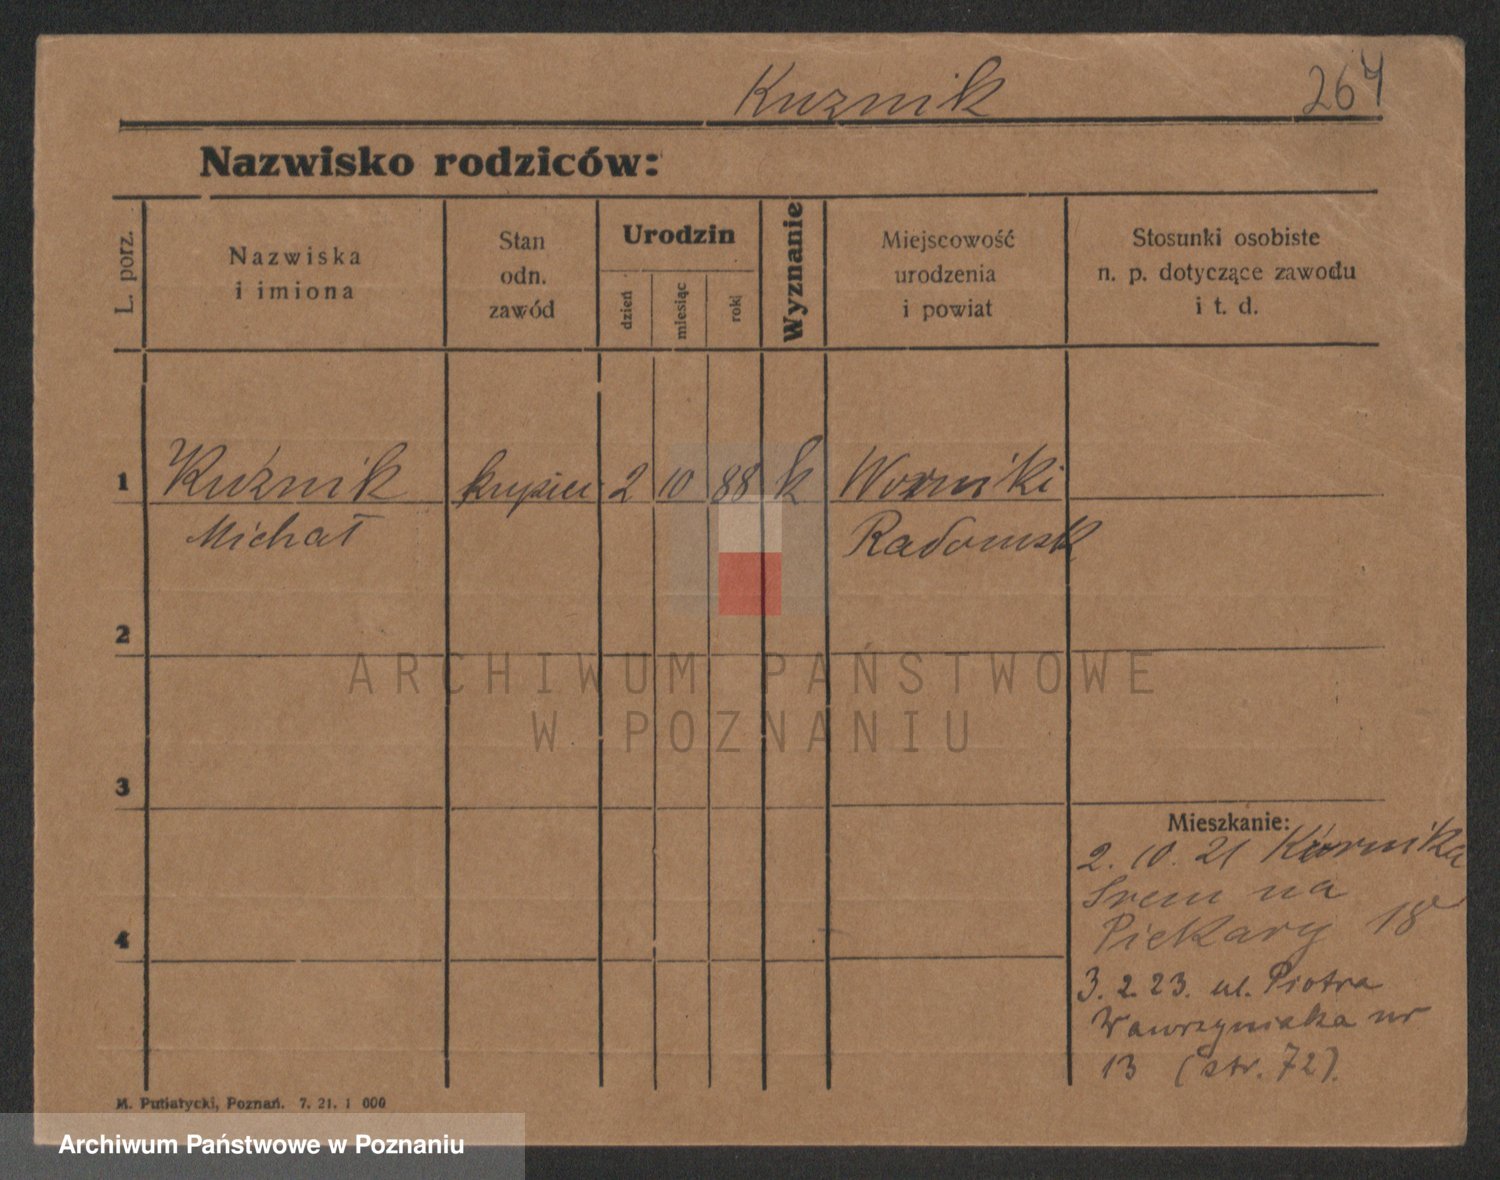 Kuznik 264
Nazwisko rodziców:
L. porz.
Nazwiska
i imiona
Stan
odn.
zawód
Urodzin
dzień
miesiąc
rok
Wyznanie
Miejscowość
urodzenia
i powiat
Stosunki osobiste
n. p. dotyczące zawodu
i t. d.
1 Kuźnik kupiec 2 10 88 k
Michał Radomsk
2
ARCHIWUM PAŃSTWOWE
W POZNANIU
3
Mieszkanie:
2. 10. 21 Kórnika
Srem na
4 Piekary 18
3. 2. 23. ul. Piotra
Wawrzyniaka nr
13 (str. 72).
M. Putiatycki, Poznań. 7. 21. 1 000
Archiwum Państwowe w Poznaniu